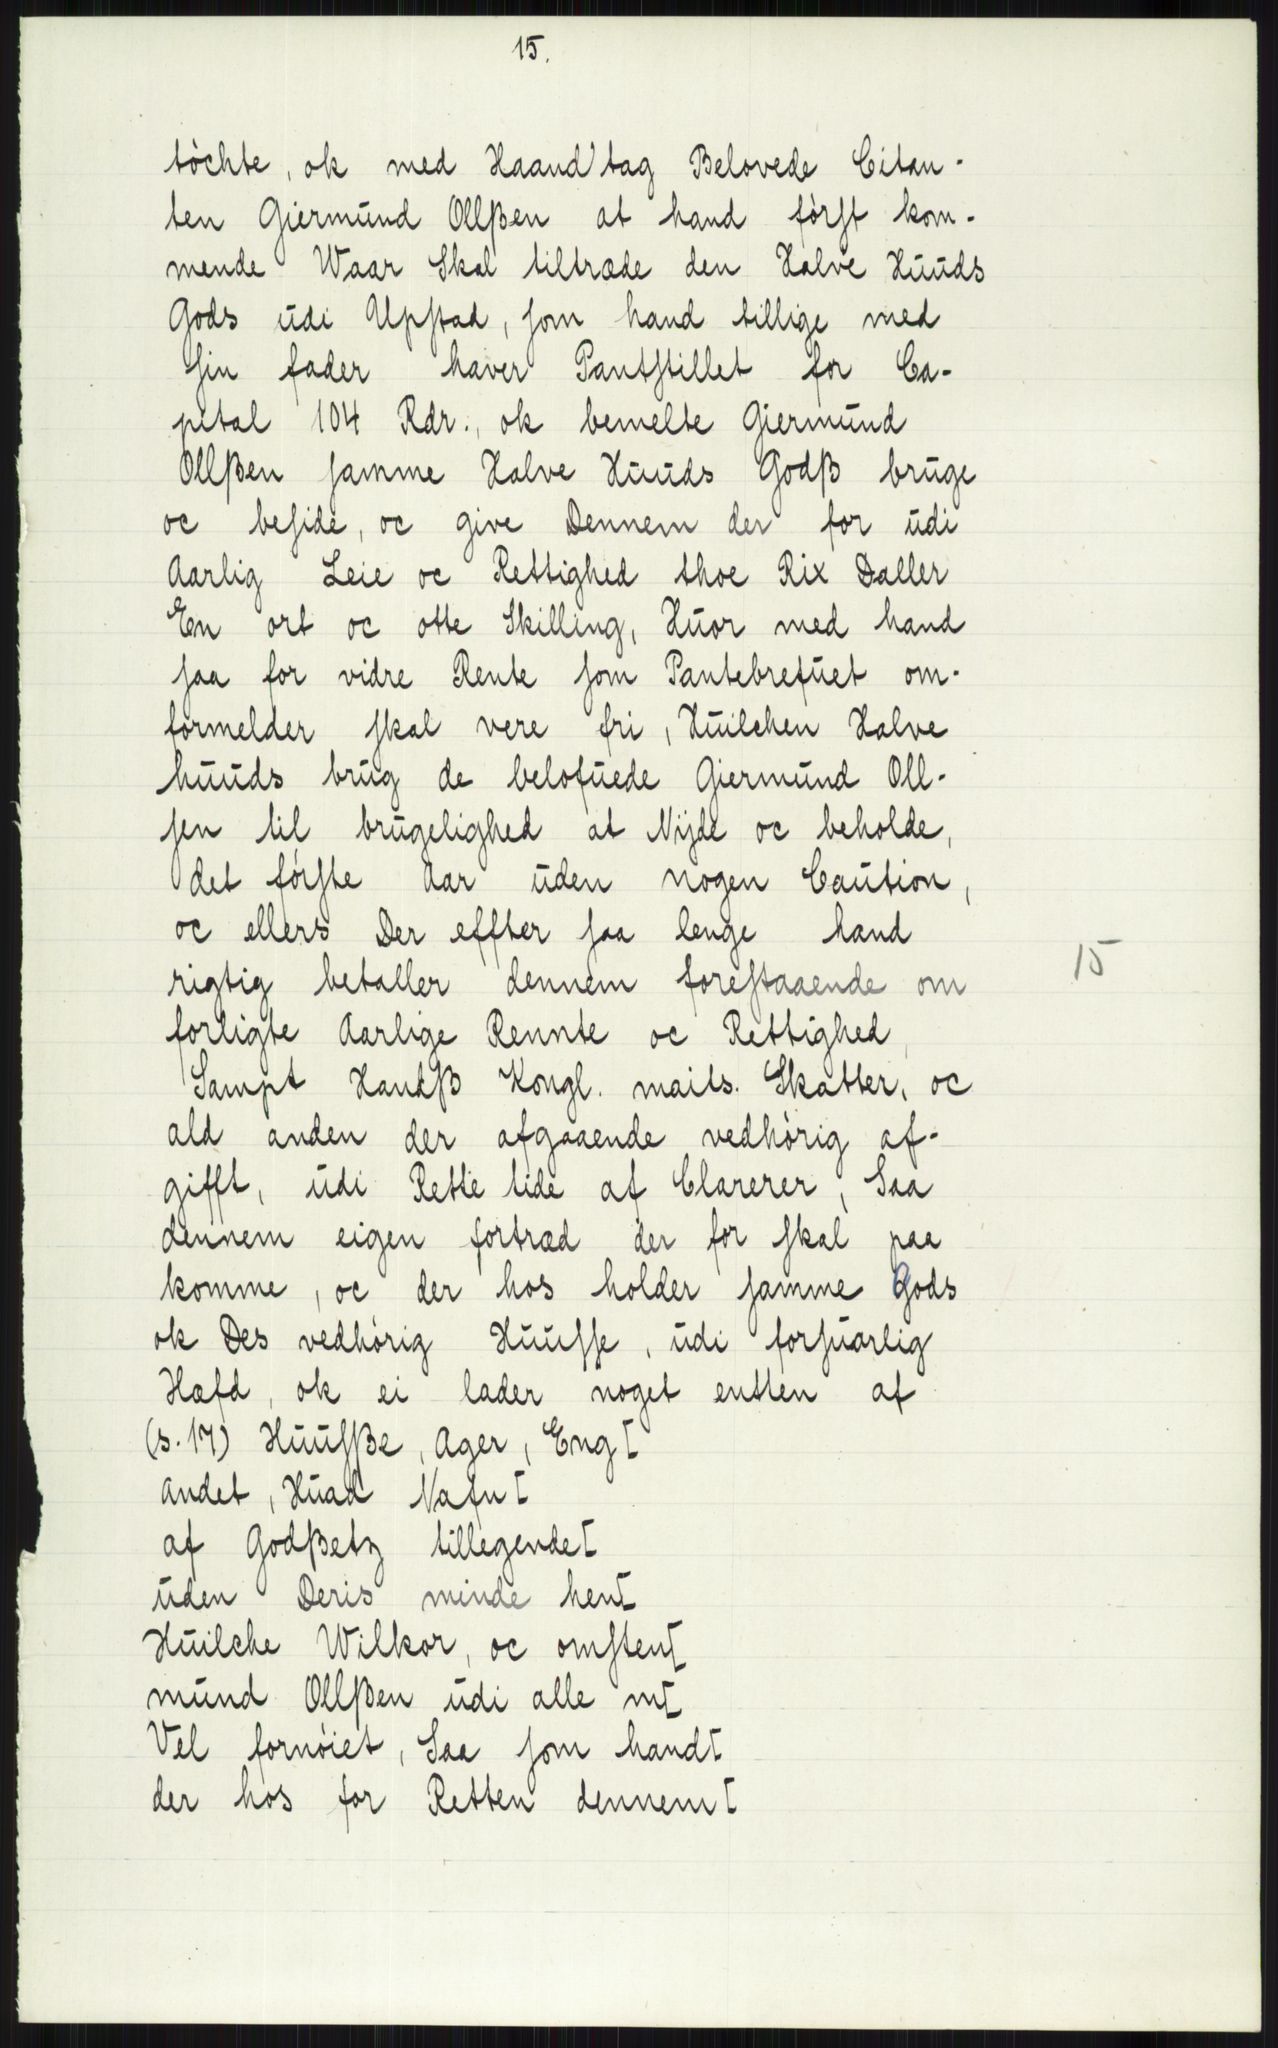 15.
töchte, ok med Haand'tag Belovede Citan-
ten Giermund Ollßen at hand först kom-
mende Waar Skal tiltræde den Halve Huuds
Gods udi Upstad, som hand tillige med
sin fader haver Pantstillet for Ca-
pital 104 Rdr., ok bemelte Giermund
Ollßen samme Halve Huuds Godß bruge
oc beside, oc give Dennem der for udi
Aarlig Leie oc Rettighed thoe Rix Daller
En ort oc otte Skilling, Huor med hand
saa for vidre Rente som Pantebrefuet om-
formelder skal vere fri, Huilchen Halve
huuds brug de belofuede Giermund Oll-
sen til brugelighed at Nijde oc beholde,
det förste Aar uden nogen Caution,
oc ellers Der effter saa lenge hand
rigtig betaller dennem forestaaende om
15
forligte Aarlige Rennte oc Rettighed,
Sampt Handß Kongl. maits. Skatter, oc
ald anden der afgaaende vedhörig af-
gifft, udi Rette tide af Clarerer, Saa
dennem eigen fortræd der for skal paa
komme, oc der hos holder samme Gods
ok Des vedhörig Huusse, udi forsuarlig
Hæfd, ok ei lader noget entten af
(s. 17) Huusße, Ager, Eng[
andet, Huad Nafn[
af Godßetz tillegende[
uden Deris minde hen[
Huilche Wilkor, oc omsten[
mund Ollßen udi alle m[
Vel fornöiet, Saa som hand[
der hos for Retten dennem[